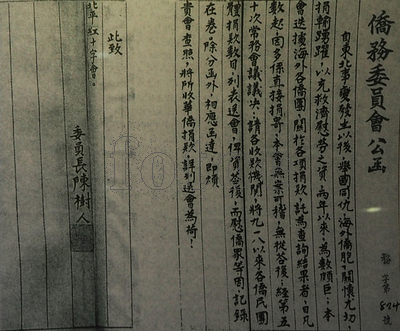 僑務委員會公函
務字第874號
自東北事變發生以後，舉國同仇，海外僑胞，關懷尤切
捐輸踴躍，以充救濟慰勞之資，兩年以來，為數頗巨；本
會迭據海外各僑團，關於各項捐款，託為查詢結果者，日凡
數起，因多係直接捐寄，本會無案可稽，無從答復，經第五
十次常務會議議決：請各收款機關，將九一八以來各僑民團
體捐款數目列表送會，俾資答復，而慰僑眾等因，記錄
在卷，除分函外，相應函達，即煩
貴會查照，將所收華僑捐款，詳列送會為荷！
此致
北平紅十字會。
委員長陳樹人